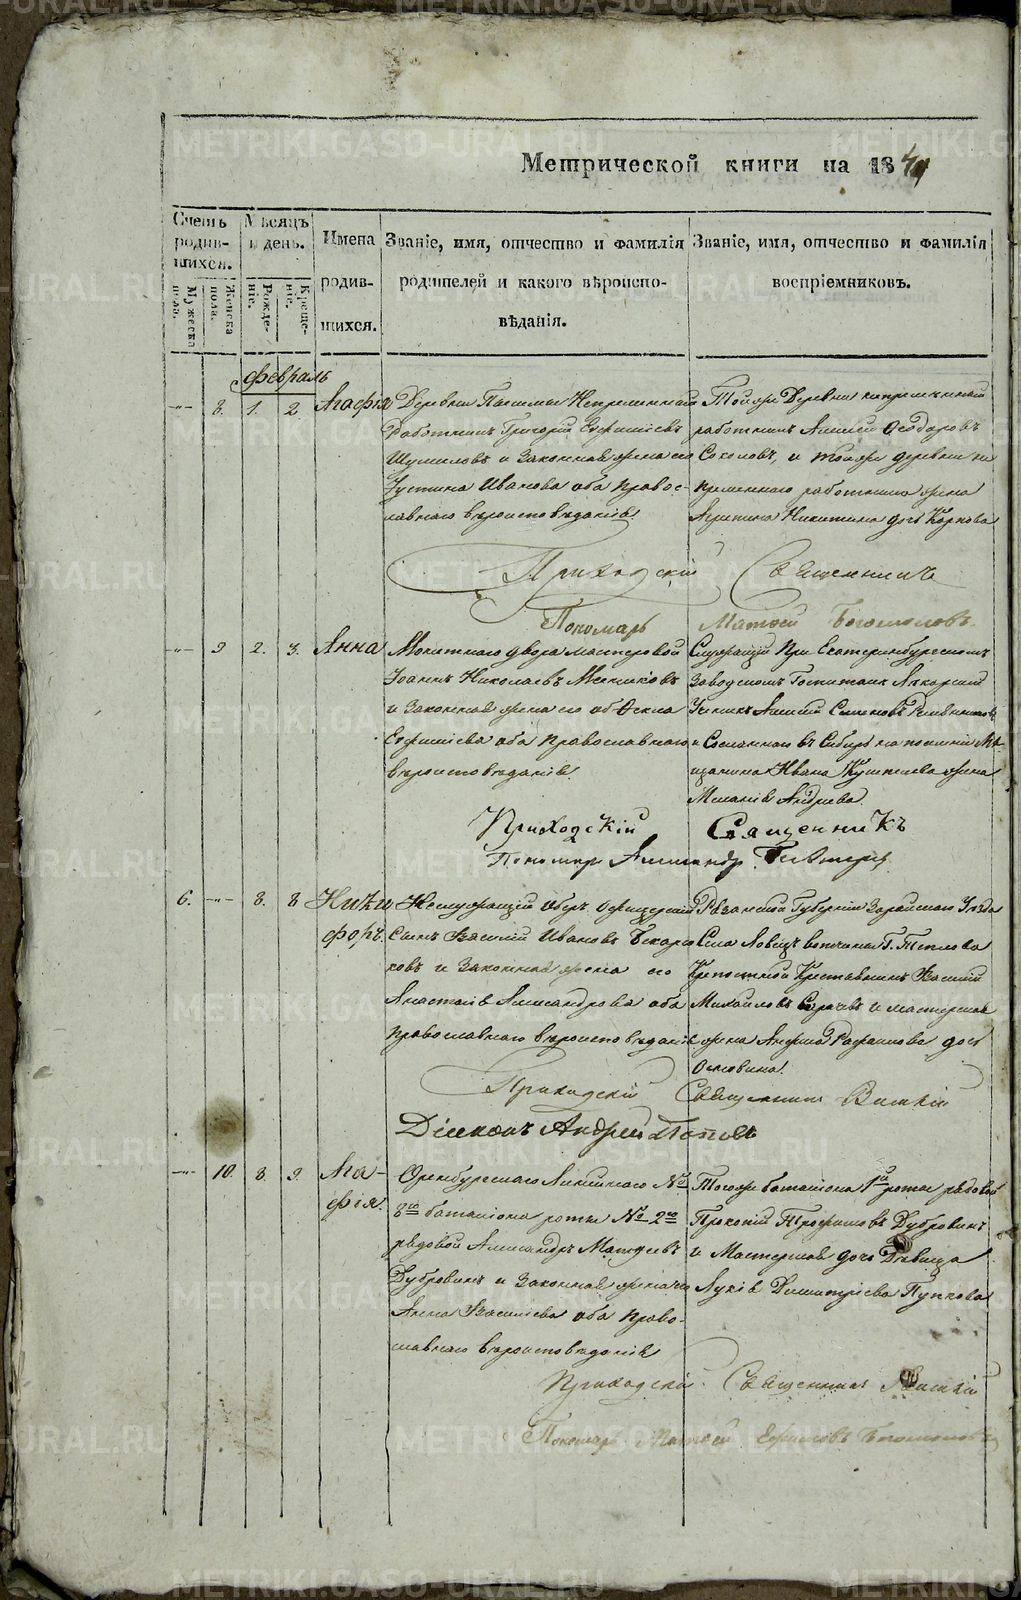 Метрической книги на 1841
Счетъ родив-шихся.
Мужеска пола.
Женска пола.
Мѣсяцъ и день.
Рожде-ніе.
Креще-ніе.
Имена
родив-
шихся.
Званіе, имя, отчество и фамилія
родителей и какого вѣроиспо-
вѣданія.
Званіе, имя, отчество и фамилія
воспріемниковъ.
февраль
8. 1. 2 Агафія
Деревни Непременный
работникъ Григорій Евфиміевъ
Шумиловъ и Законная жена его
Устина Иванова оба Правос-
лавнаго вѣроисповѣданія.
Тойже Деревни непременный
работникъ Алексей Ѳеодоровъ
Соколовъ, и тойже деревни не
пременнаго работника жена
Никитина дочь
Приходскій Священникъ
Пономарь Матвей Богомоловъ.
9 2. 3. Анна
Монетнаго двора мастеровой
Іоаннъ Николаевъ
и Законная жена его Ѳекла
Евфиміева оба православнаго
вѣроисповѣданія.
Служащій При Екатеринбургскомъ
Заводскомъ Госпитале Лекарскій
Ученикъ Алексей Семеновъ
и Сосланнаго въ Сибирь на поселеніе Ме-
щанина Ивана жена
Андреева.
Приходскій Священникъ
Пономарь Александр
6. 8. 8 Ники
форъ.
Неслужащій Оберъ Офицерскій
Сынъ Василій Ивановъ
ковъ и Законная жена его
Анастасія Александрова оба
православнаго вѣроисповѣданія
Рязанской Губерніи Зарайскаго Уезда
Села Ловецъ вотчины Г. Теплова
Крепостной Крестьянинъ Василій
Михайловъ и мастерская
жена дочь
Приходскій Священникъ
Діаконъ Андрей Поповъ
10. 8. 9. Ага-
фія.
Оренбургскаго Линейнаго №
8го баталіона роты № 2го
рядовой Александръ Матфеевъ
Дубровинъ и Законная жена его
Анна Васильева оба право-
славнаго вѣроисповѣданія
Тогоже баталіона 1й роты рядовой
Прокопій Трофимовъ Дубровинъ
и Мастерская дочь Девица
Димитріева Пупкова
Приходскій Священникъ
Пономарь Матвей Ефимовъ Богомоловъ
METRIKI.GASO-URAL.RU